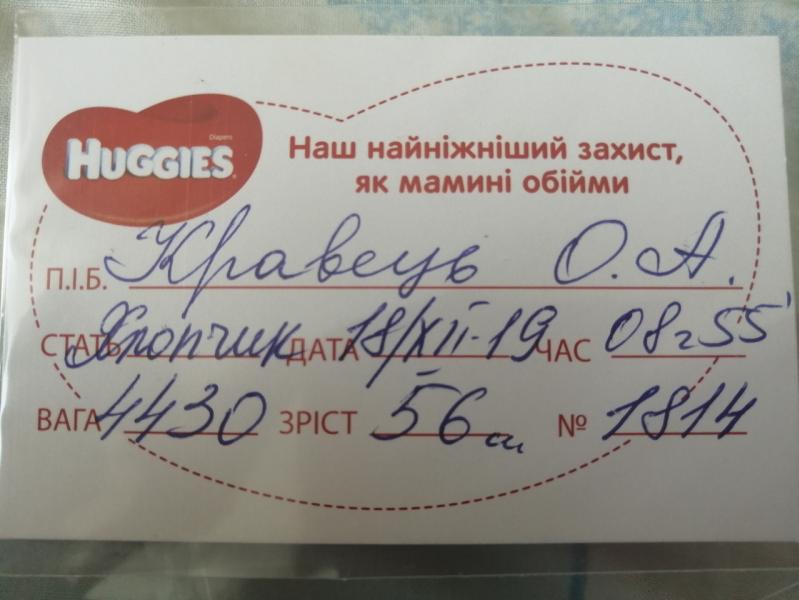 Diapers
HUGGIES
Наш найніжніший захист,
як мамині обійми
П.І.Б. Кравець О. А.
СТАТЬ Хлопчик ДАТА 18/XII-19 ЧАС 08 г 55'
ВАГА 4430 ЗРІСТ 56 см № 1814